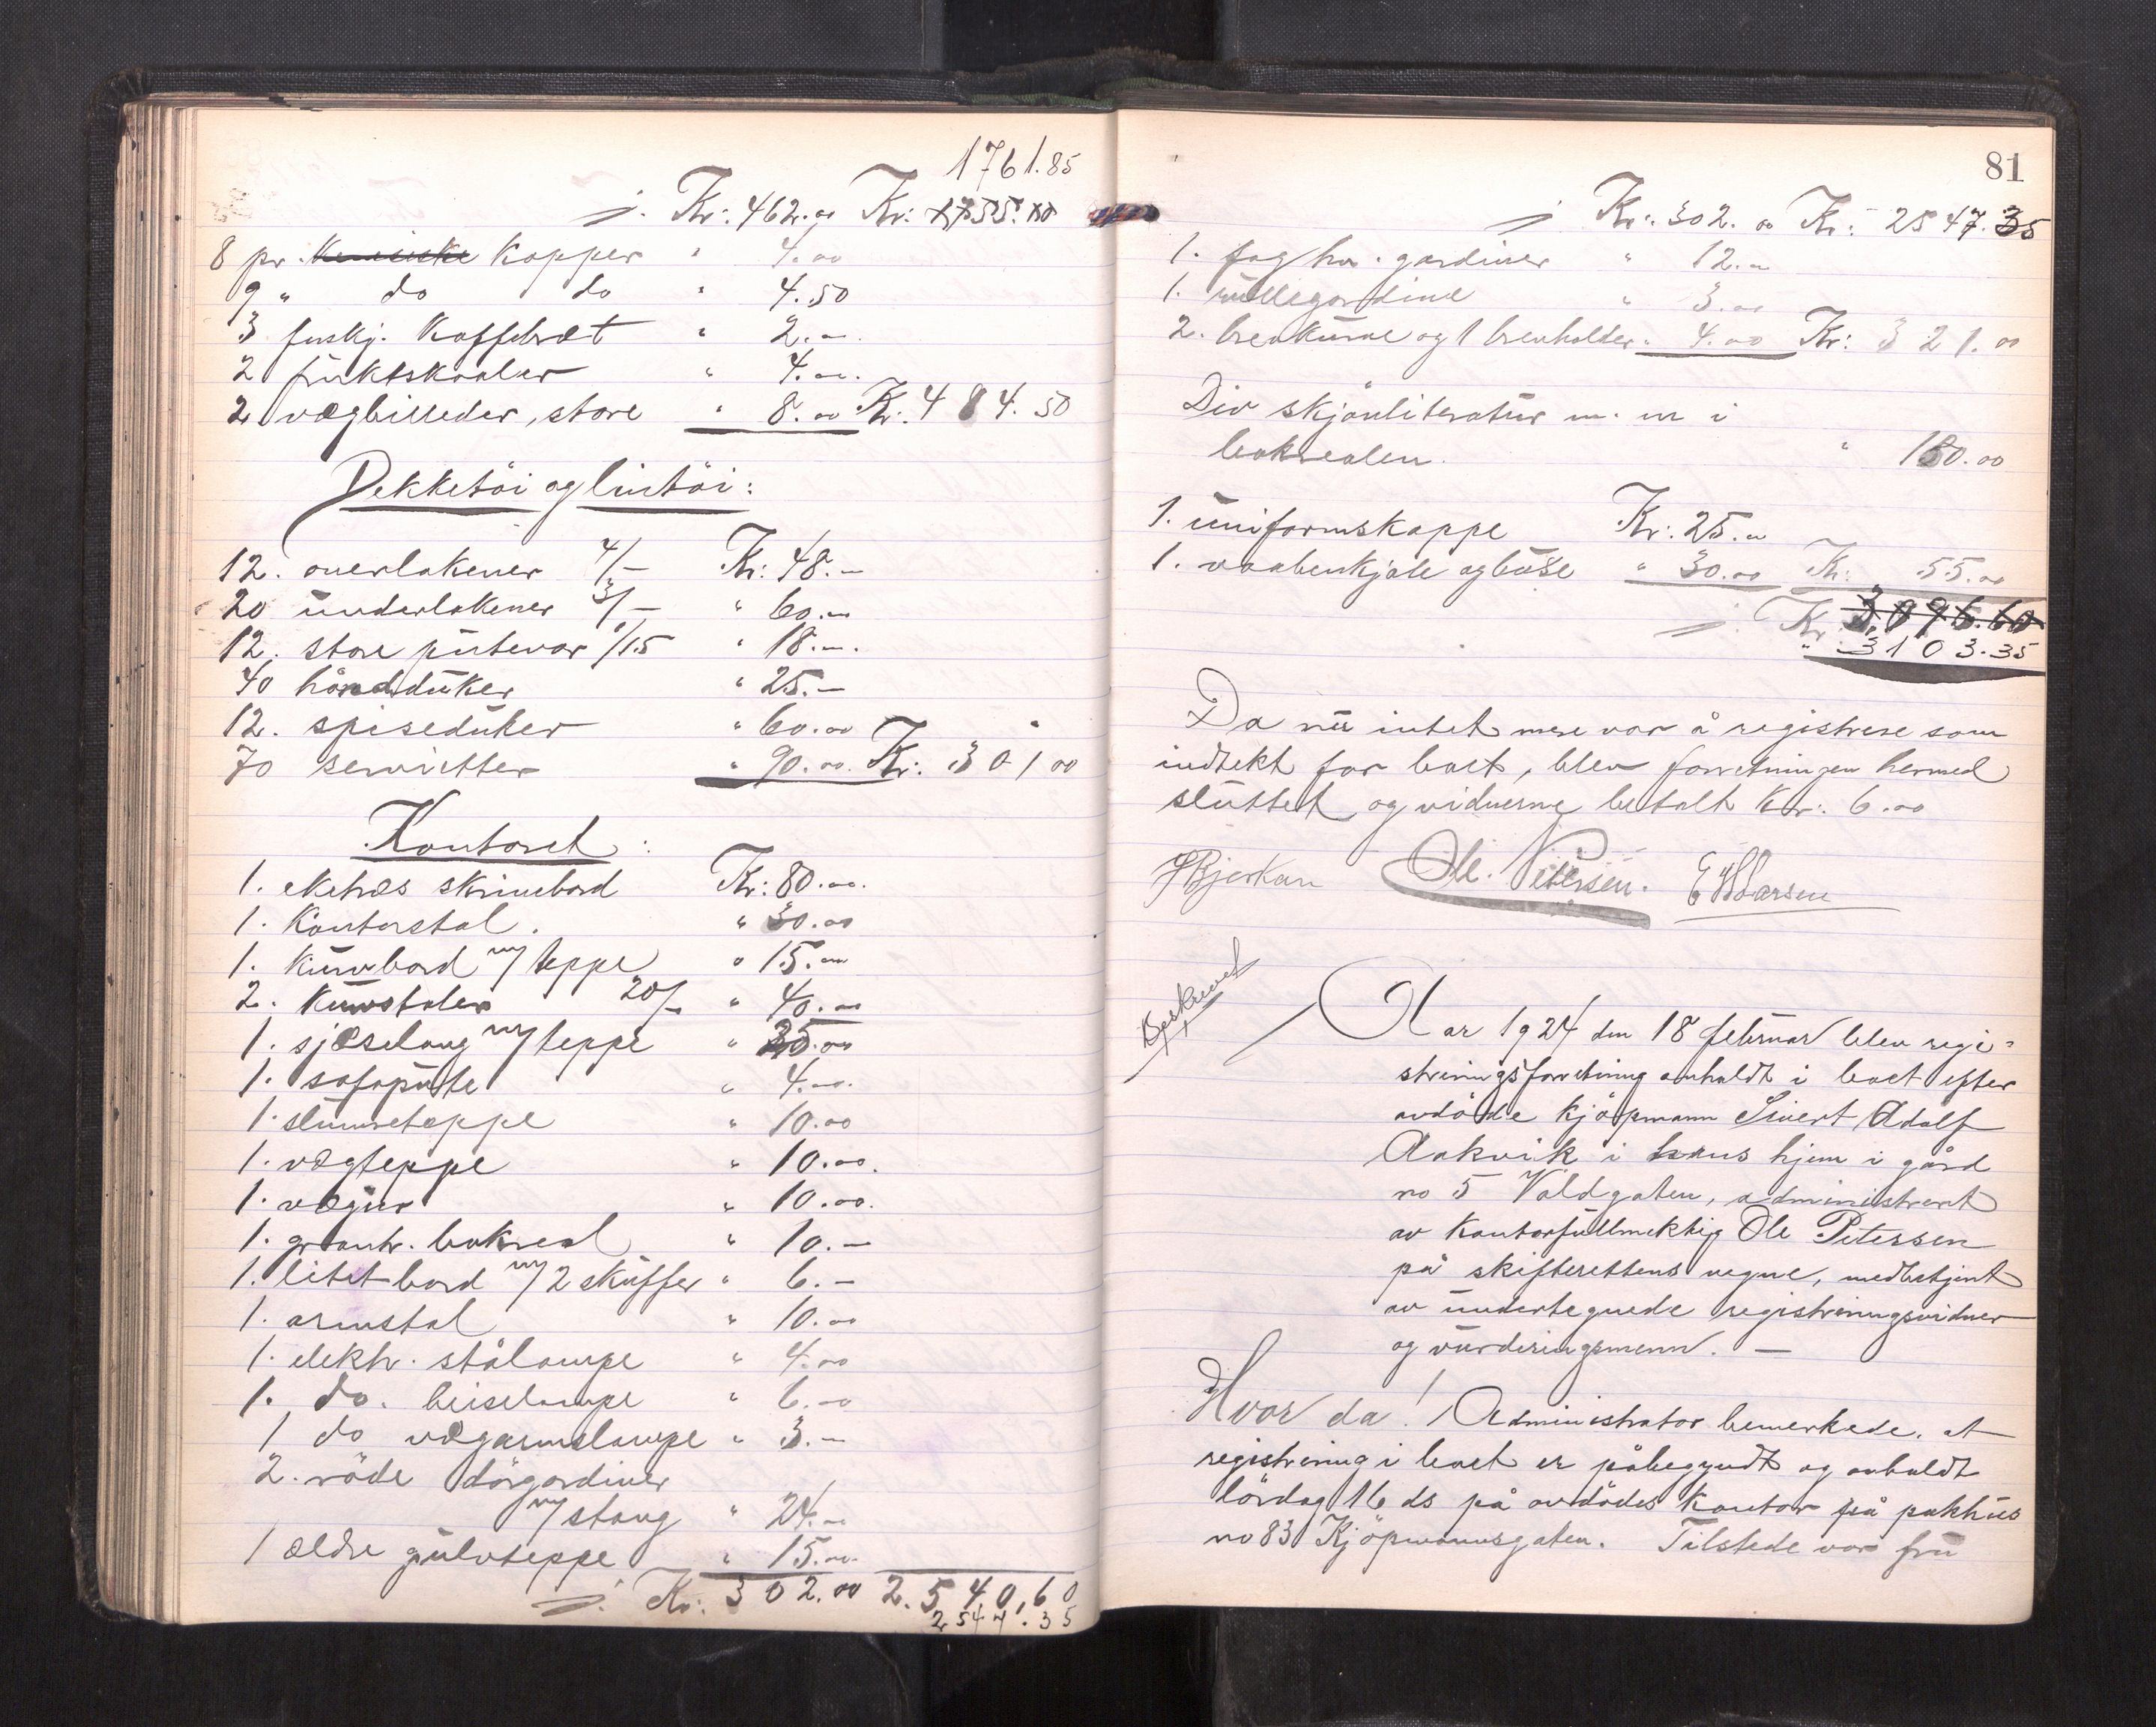 1761.85
i. Kr: 462.00 Kr: 1755.10
8 pr. kinesiske kopper " 4.00
9 " do do " 4.50
3 forskj. kaffebræt " 2.00
2 fruktskaaler " 4.00
2 vægbilleder, store " 8.00 Kr: 484.50
Dekketöi og lintöi:
12. overlakener 4/- Kr: 48.-
20 underlakener 3/- " 60.-
12. store putevar 1/15 " 18.-
40 håndduker " 25.-
12. spiseduker " 60.00
70 servietter " 90.00 Kr: 301.00
Kontoret:
1. eketræs skrivebord Kr: 80.00
1. Kontorstol. " 30.00
1. kurvbord m/ teppe " 15.00
2. kurvstoler 20/- " 40.00
1. sjæselong m/ teppe " 35.00
1. sofapute " 4.00
1. slumreteppe " 10.00
1. vægteppe " 10.00
1. vægur " 10.00
1. grantr. bokreol " 10.-
1. litet bord m/ 2 skuffer " 6.-
1. armstol " 10.00
1. elektr. stålampe " 4.00
1. do. heiselampe " 6.00
1 do vægarmslampe " 3.-
2. röde dörgardiner
m/ stang " 24.00
1 ældre gulvteppe " 15.00
i. Kr: 302.00 2.540,60
2547.35
81
i Kr: 302.00 Kr: 2547.35
1. fag hv. gardiner " 12.00
1. rullegardine " 3.00
2. brevkurve og 1 brevholder " 4.00 Kr: 321.00
Div skjönliteratur m. m i
bokreolen. " 180.00
1. uniformskappe Kr: 25.00
1. vaabenkjole og bukse " 30.00 Kr: 55.00
i. Kr 3,096.60
" 3103.35
Da nu intet mere var å registrere som
indtekt for boet, blev forretningen hermed
sluttet og vidnerne betalt Kr: 6.00
Bjerkan Ole. Petersen. E Larsen
Beskrevet
Aar 1924 den 18 februar blev regi-
streringsforretning anholdt i boet efter
avdöde kjöpmann Sivert Adolf
Aakvik i hans hjem i gård
no 5 Voldgaten, administrert
av kontorfullmektig Ole Petersen
på skifterettens vegne, medbetjent
av undertegnede registreringsvidner
og vurderingsmenn. —
Hvor da! Administrator bemerkede, at
registrering i boet er påbegyndt og anholdt
lördag 16 ds på avdödes kontor på pakhus
no 83 Kjöpmannsgaten. Tilstede var fru